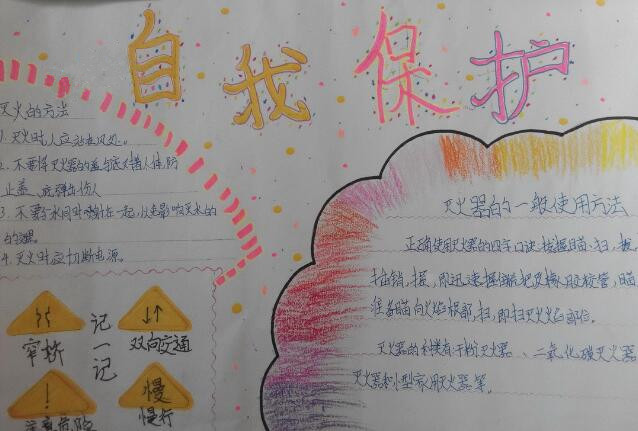 自我保护
灭火的方法
1.灭火时人应站在风处。
2.不要将灭火器的盖与底对着人体,防
止盖、底弹出伤人
3.不要与水同时喷在一起,以免影响灭火的
的效果。
4.灭火时应切断电源。
记一记
窄桥
双向交通
注意危险
慢
慢行
灭火器的一般使用方法
正确使用灭火器的四字口诀:拔握瞄扫,拔,
插销,握,即迅速握住
瞄向火焰根部,扫,即扫灭火焰部位。
灭火器的种类有干粉灭火器、二氧化碳灭火器
灭火器和小型家用灭火器等。